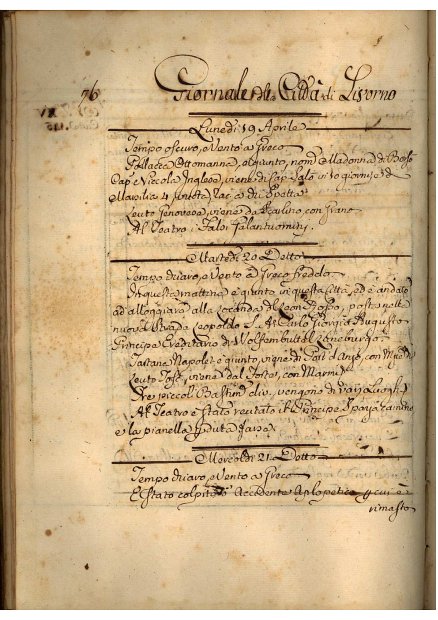 76 Giornale della Città di Livorno
Lunedi 19 Aprile
Tempo oscuro, e Vento a Greco
Pollacca Ottomanna, è giunto, nom.
Cap. Niccola Inglese, viene di Cap. Salò in 10 giorni, e di
Marsilia 4
Leuto Genovese, viene da Scalino, con Grano
Al Teatro i Falsi Galantuomini
Martedi 20 Detto
Tempo chiaro, e Vento a Greco freddo
In questa mattina è giunto in questa Città, ed è andato
ad alloggiare alla Locanda del Leon Rosso, posto nella
nuova Strada Leopoldo S. A. Carlo Giorgio Augusto
Principe Ereditario di Wolfembuttel Luneburgo
Tartane Napolet. è giunto, viene di Port d'Anzo, con
Leuto Tosc. viene del Forte, con Marmi
Tre piccoli Bastim. div. vengono di varj Luoghi
Al Teatro è stato recitato il Principe Spazzacamino
e la pianella perduta farsa
Mercoldi 21 Detto
Tempo chiaro, Vento a Greco
È Stato colpito d'Accidente Aplopetico
rimasto